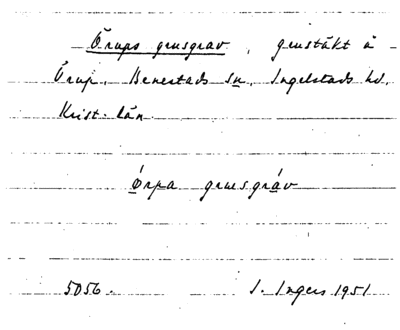 Örups grusgrav, grustäkt å
Örup, Benestads sn, Ingelstads hd,
Krist. län
Örpa grusgráv
5056. I. Ingers 1951